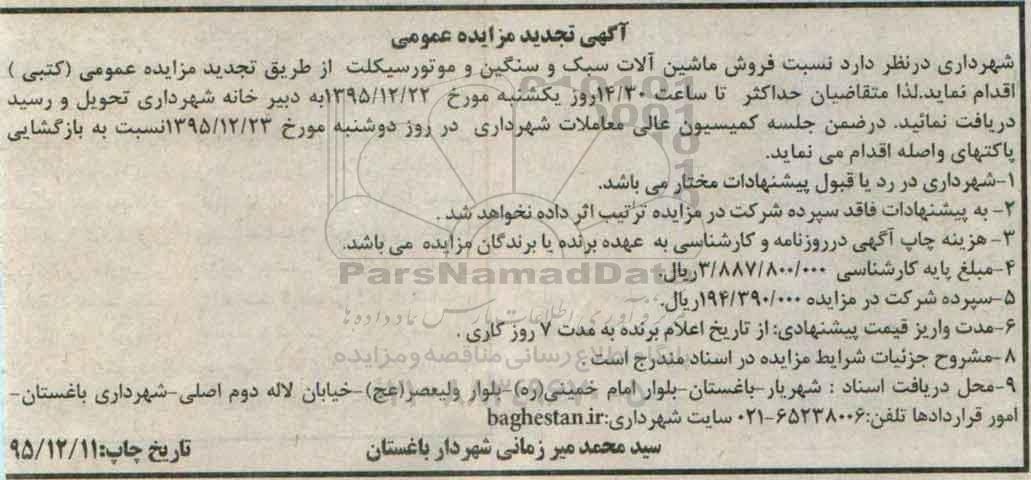 آگهی تجدید مزایده عمومی
شهرداری درنظر دارد نسبت فروش ماشین آلات سبک و سنگین و موتورسیکلت از طریق تجدید مزایده عمومی (کتبی )
اقدام نماید.لذا متقاضیان حداکثر تا ساعت ۱۴/۳۰روز یکشنبه مورخ ۱۳۹۵/۱۲/۲۲به دبیر خانه شهرداری تحویل و رسید
دریافت نمائید. درضمن جلسه کمیسیون عالی معاملات شهرداری در روز دوشنبه مورخ ۱۳۹۵/۱۲/۲۳نسبت به بازگشایی
پاکتهای واصله اقدام می نماید.
۱-شهرداری در رد یا قبول پیشنهادات مختار می باشد.
۲- به پیشنهادات فاقد سپرده شرکت در مزایده ترتیب اثر داده نخواهد شد .
۳- هزینه چاپ آگهی درروزنامه و کارشناسی به عهده برنده یا برندگان مزایده می باشد.
۴-مبلغ پایه کارشناسی ۳/۸۸۷/۸۰۰/۰۰۰ریال.
ParsNamadData
۵-سپرده شرکت در مزایده ۱۹۴/۳۹۰/۰۰۰ریال.
۶-مدت واریز قیمت پیشنهادی: از تاریخ اعلام برنده به مدت ۷ روز کاری .
پایگاه اطلاع رسانی مناقصه و مزایده
۸-مشروح جزئیات شرایط مزایده در اسناد مندرج است .
۹-محل دریافت اسناد : شهریار-باغستان-بلوار امام خمینی(ره)-بلوار ولیعصر(عج)-خیابان لاله دوم اصلی-شهرداری باغستان-
امور قراردادها تلفن:۶۵۲۳۸۰۰۶-۰۲۱ سایت شهرداری:baghestan.ir
سید محمد میر زمانی شهردار باغستان
تاریخ چاپ:۹۵/۱۲/۱۱